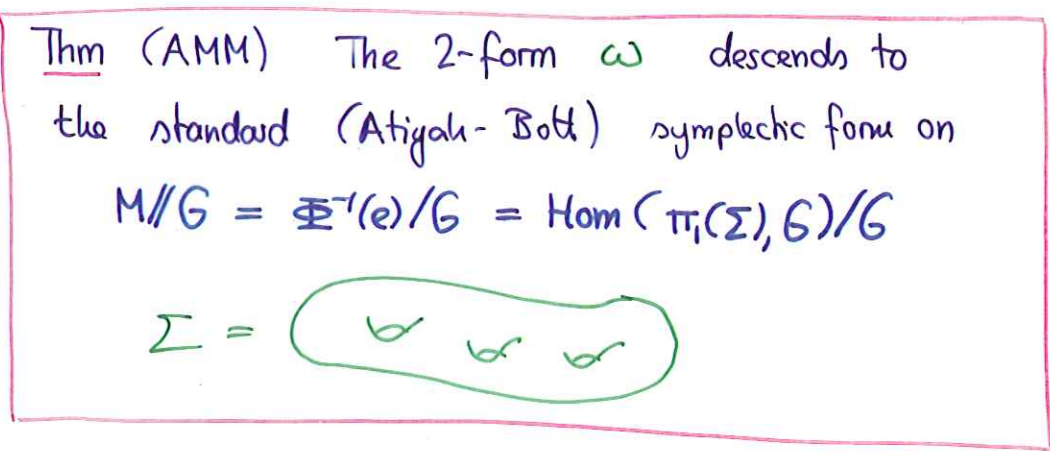 Thm (AMM) The 2-form ω descends to
the standard (Atiyah-Bott) symplectic form on
M//G = Φ⁻¹(e)/G = Hom(π₁(Σ), G)/G
Σ =